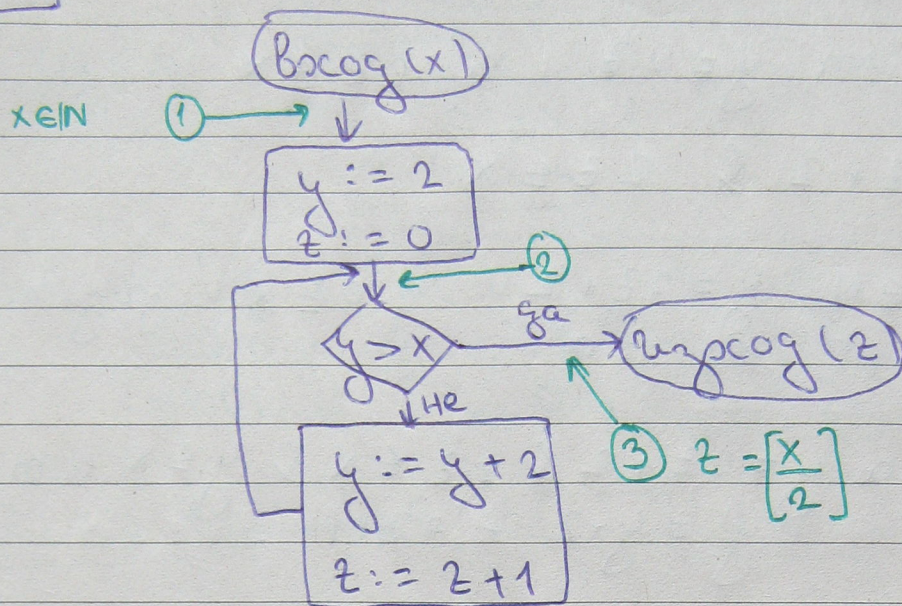 Вход (x)
x ∈ ℕ ①
y := 2
z := 0
②
y > x да Изход (z)
не
y := y + 2 ③ z = [x/2]
z := z + 1